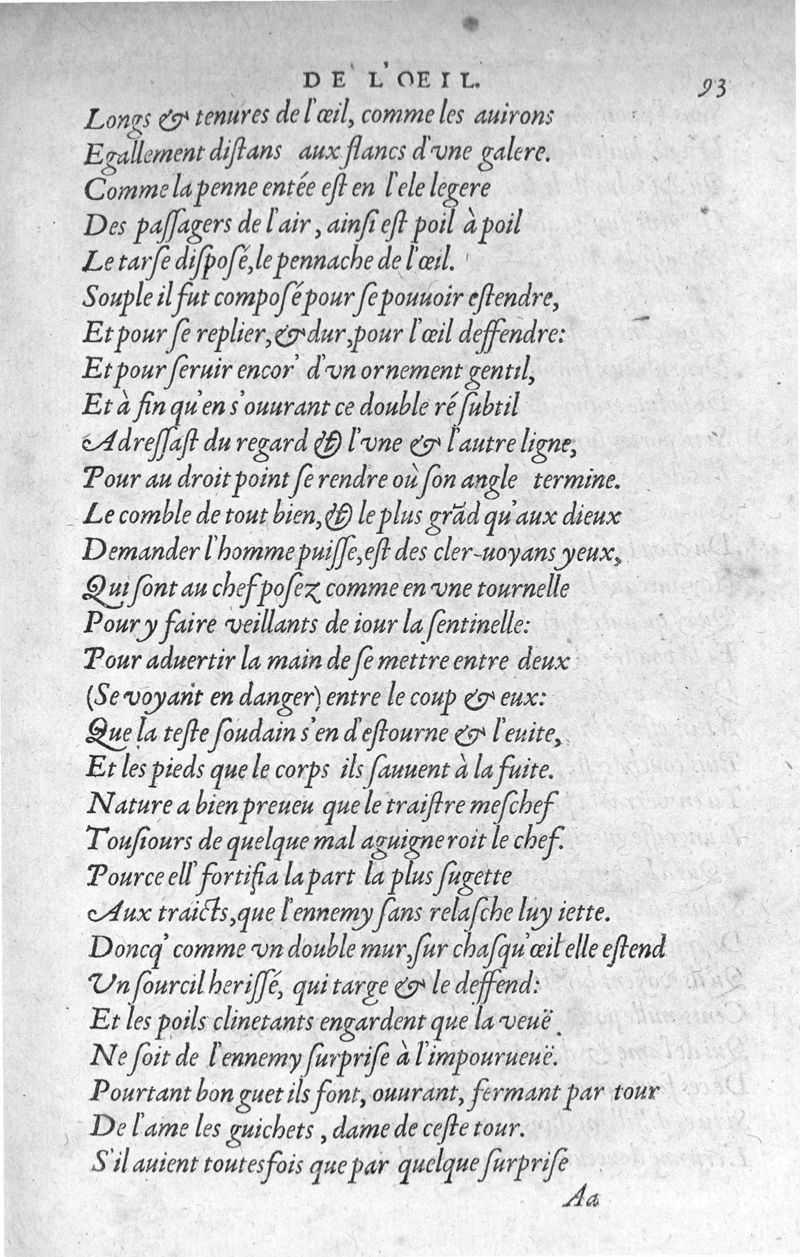 DE L'OEIL.
93
Longs & tenures de l'œil, comme les auirons
Egallement distans aux flancs d'vne galere.
Comme la penne entée est en l'ele legere
Des passagers de l'air, ainsi est poil à poil
Le tarse disposé, le pennache de l'œil.
Souple il fut composé pour se pouuoir estendre,
Et pour se replier, & dur, pour l'œil deffendre:
Et pour seruir encor' d'vn ornement gentil,
Et à fin qu'en s'ouurant ce double ré subtil
Adressast du regard & l'vne & l'autre ligne,
Pour au droit point se rendre où son angle termine.
Le comble de tout bien, & le plus grãd qu'aux dieux
Demander l'homme puisse, est des cler-uoyans yeux,
Qui sont au chef posez comme en vne tournelle
Pour y faire veillants de iour la sentinelle:
Pour aduertir la main de se mettre entre deux
(Se voyant en danger) entre le coup & eux:
Que la teste soudain s'en d'estourne & l'euite,
Et les pieds que le corps ils sauuent à la fuite.
Nature a bien preueu que le traistre meschef
Tousiours de quelque mal aguigneroit le chef.
Pource ell' fortifia la part la plus sugette
Aux traicts, que l'ennemy sans relasche luy iette.
Doncq' comme vn double mur, sur chasqu'œil elle estend
Vn sourcil herissé, qui targe & le deffend:
Et les poils clinetants engardent que la veuë
Ne soit de l'ennemy surprise à l'impourueuë.
Pourtant bon guet ils font, ouurant, fermant par tour
De l'ame les guichets, dame de ceste tour.
S'il auient toutesfois que par quelque surprise
Aa